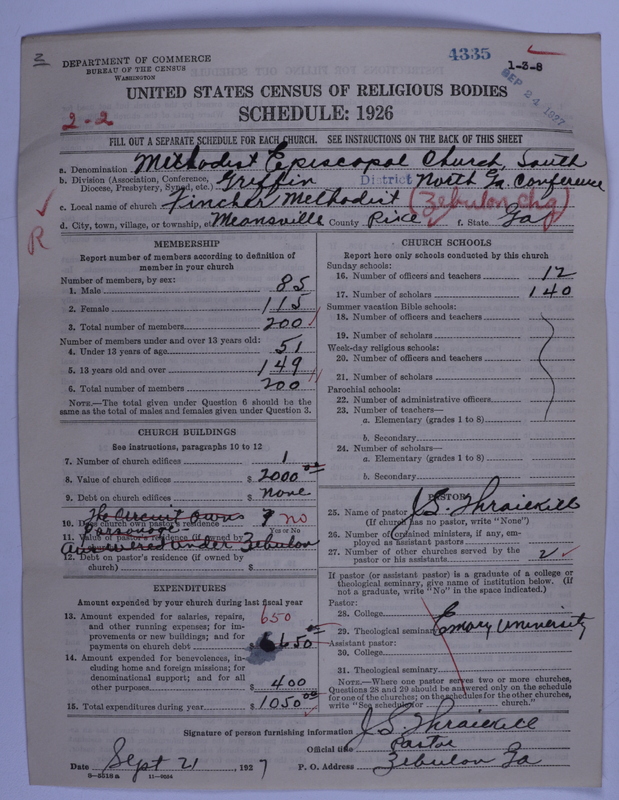 4335
1-3-8
DEPARTMENT OF COMMERCE
BUREAU OF THE CENSUS
WASHINGTON
SEP 24 1927
UNITED STATES CENSUS OF RELIGIOUS BODIES
SCHEDULE: 1926
2-2
FILL OUT A SEPARATE SCHEDULE FOR EACH CHURCH. SEE INSTRUCTIONS ON THE BACK OF THIS SHEET
a. Denomination Methodist Episcopal Church, South
b. Division (Association, Conference, Diocese, Presbytery, Synod, etc.) Griffin District North Ga. Conference
c. Local name of church Fincher Methodist (Zebulon Chg)
d. City, town, village, or township, etc. Meansville County Pike f. State Ga
R
MEMBERSHIP
Report number of members according to definition of
member in your church
Number of members, by sex:
1. Male 85
2. Female 115
3. Total number of members 200
Number of members under and over 13 years old:
4. Under 13 years of age 51
5. 13 years old and over 149
6. Total number of members 200
NOTE.—The total given under Question 6 should be the
same as the total of males and females given under Question 3.
CHURCH BUILDINGS
See instructions, paragraphs 10 to 12
7. Number of church edifices 1
8. Value of church edifices $ 2000 00
9. Debt on church edifices $ None
The Circuit owns
10. Does church own pastor's residence ? no
Yes or No
Parsonage
11. Value of pastor's residence (if owned by
Answered under Zebulon
12. Debt on pastor's residence (if owned by
church) $
EXPENDITURES
Amount expended by your church during last fiscal year
13. Amount expended for salaries, repairs, 650
and other running expenses; for im-
provements or new buildings; and for
payments on church debt 6650 00
14. Amount expended for benevolences, in-
cluding home and foreign missions; for
denominational support; and for all
other purposes $ 400
15. Total expenditures during year $ 1050 00
CHURCH SCHOOLS
Report here only schools conducted by this church
Sunday schools:
16. Number of officers and teachers 12
17. Number of scholars 140
Summer vacation Bible schools:
18. Number of officers and teachers
19. Number of scholars
Week-day religious schools:
20. Number of officers and teachers
21. Number of scholars
Parochial schools:
22. Number of administrative officers
23. Number of teachers—
a. Elementary (grades 1 to 8)
b. Secondary
24. Number of scholars—
a. Elementary (grades 1 to 8)
b. Secondary
PASTOR
25. Name of pastor J. S. Thrailkill
(If church has no pastor, write "None")
26. Number of (ordained ministers, if any, em-
ployed as assistant pastors
27. Number of other churches served by the
pastor or his assistants 2
If pastor (or assistant pastor) is a graduate of a college or
theological seminary, give name of institution below. (If
not a graduate, write "No" in the space indicated.)
Pastor:
28. College
29. Theological seminary Emory University
Assistant pastor:
30. College
31. Theological seminary
NOTE.—Where one pastor serves two or more churches,
Questions 28 and 29 should be answered only on the schedule
for one of the churches; on the schedules for the other churches,
write "See schedule for church."
Signature of person furnishing information J. S. Thrailkill
Official title Pastor
Date Sept 21, 1927 P. O. Address Zebulon Ga
8-5518a 11-9054